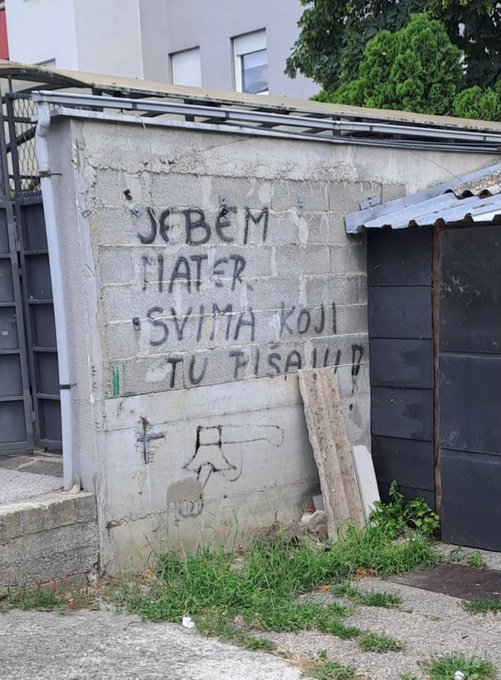 JEBEM
MATER
SVIMA KOJI
TU PIŠAJU!